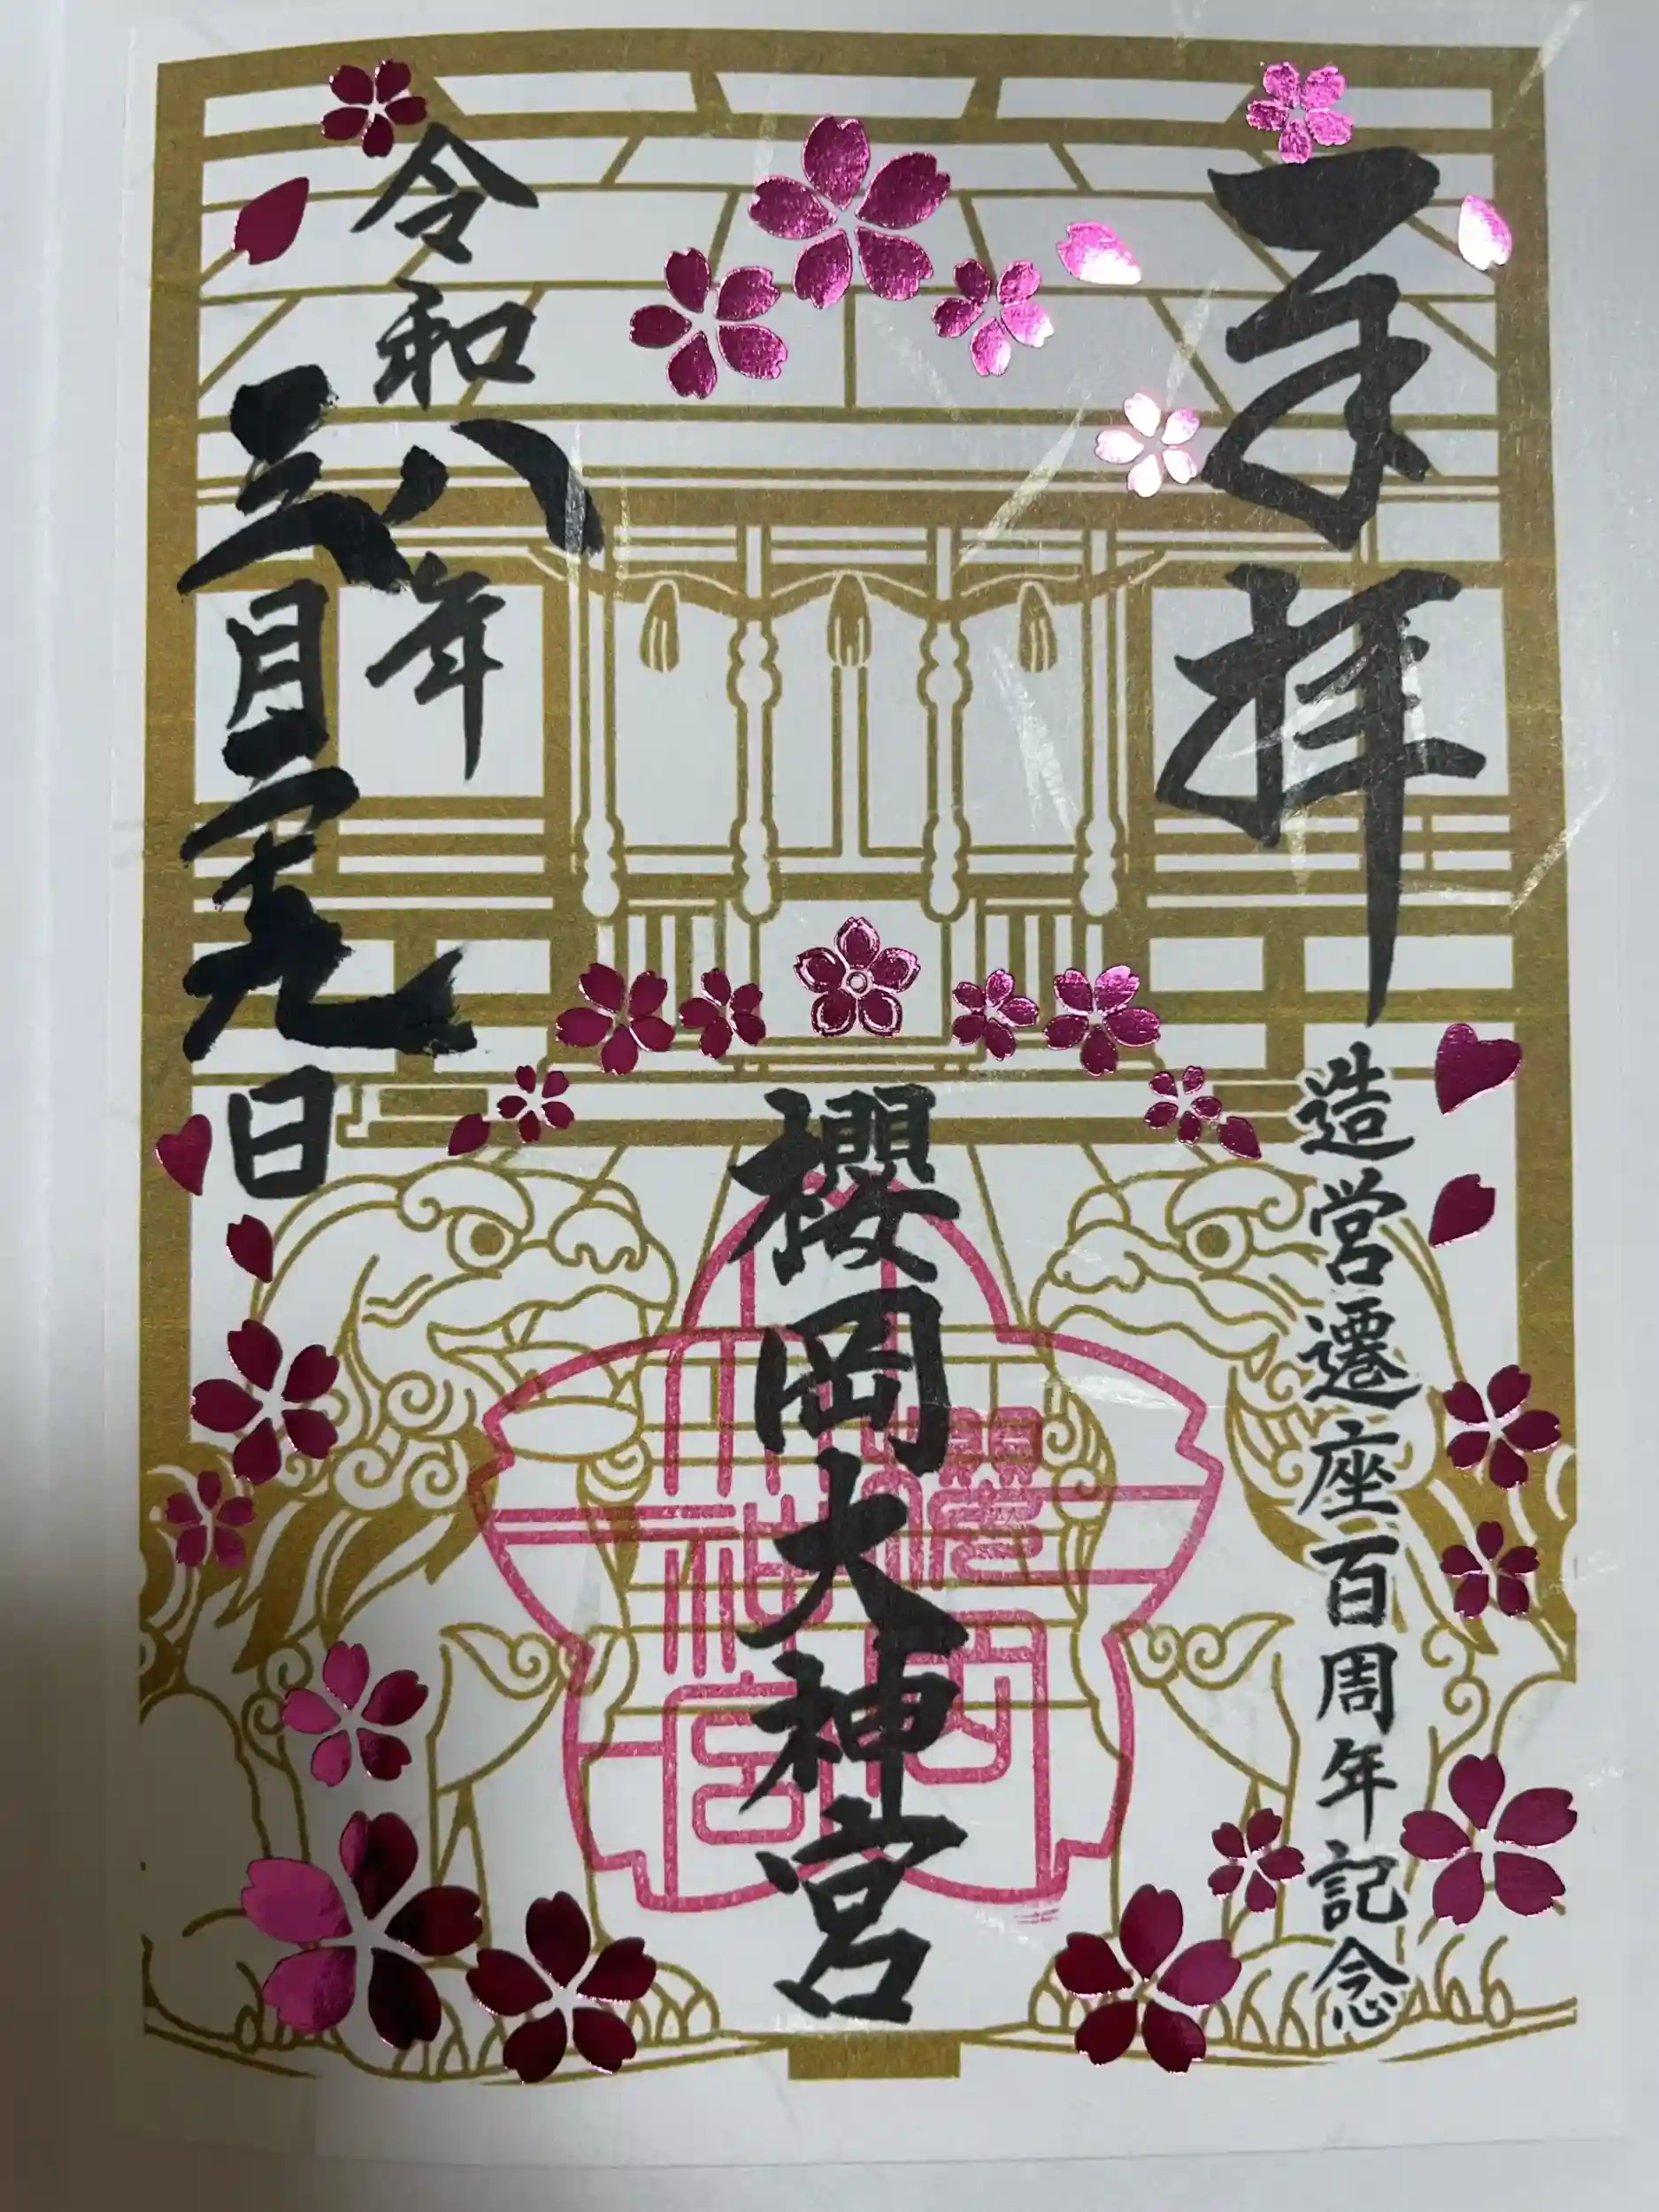 奉拝
造営遷座百周年記念
櫻岡大神宮
令和八年
三月二十九日